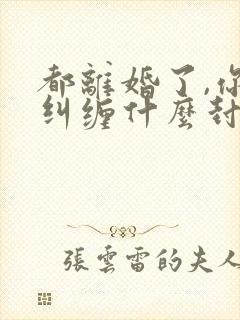 都離婚了,你
纠缠什麼封
張雲雷的夫人